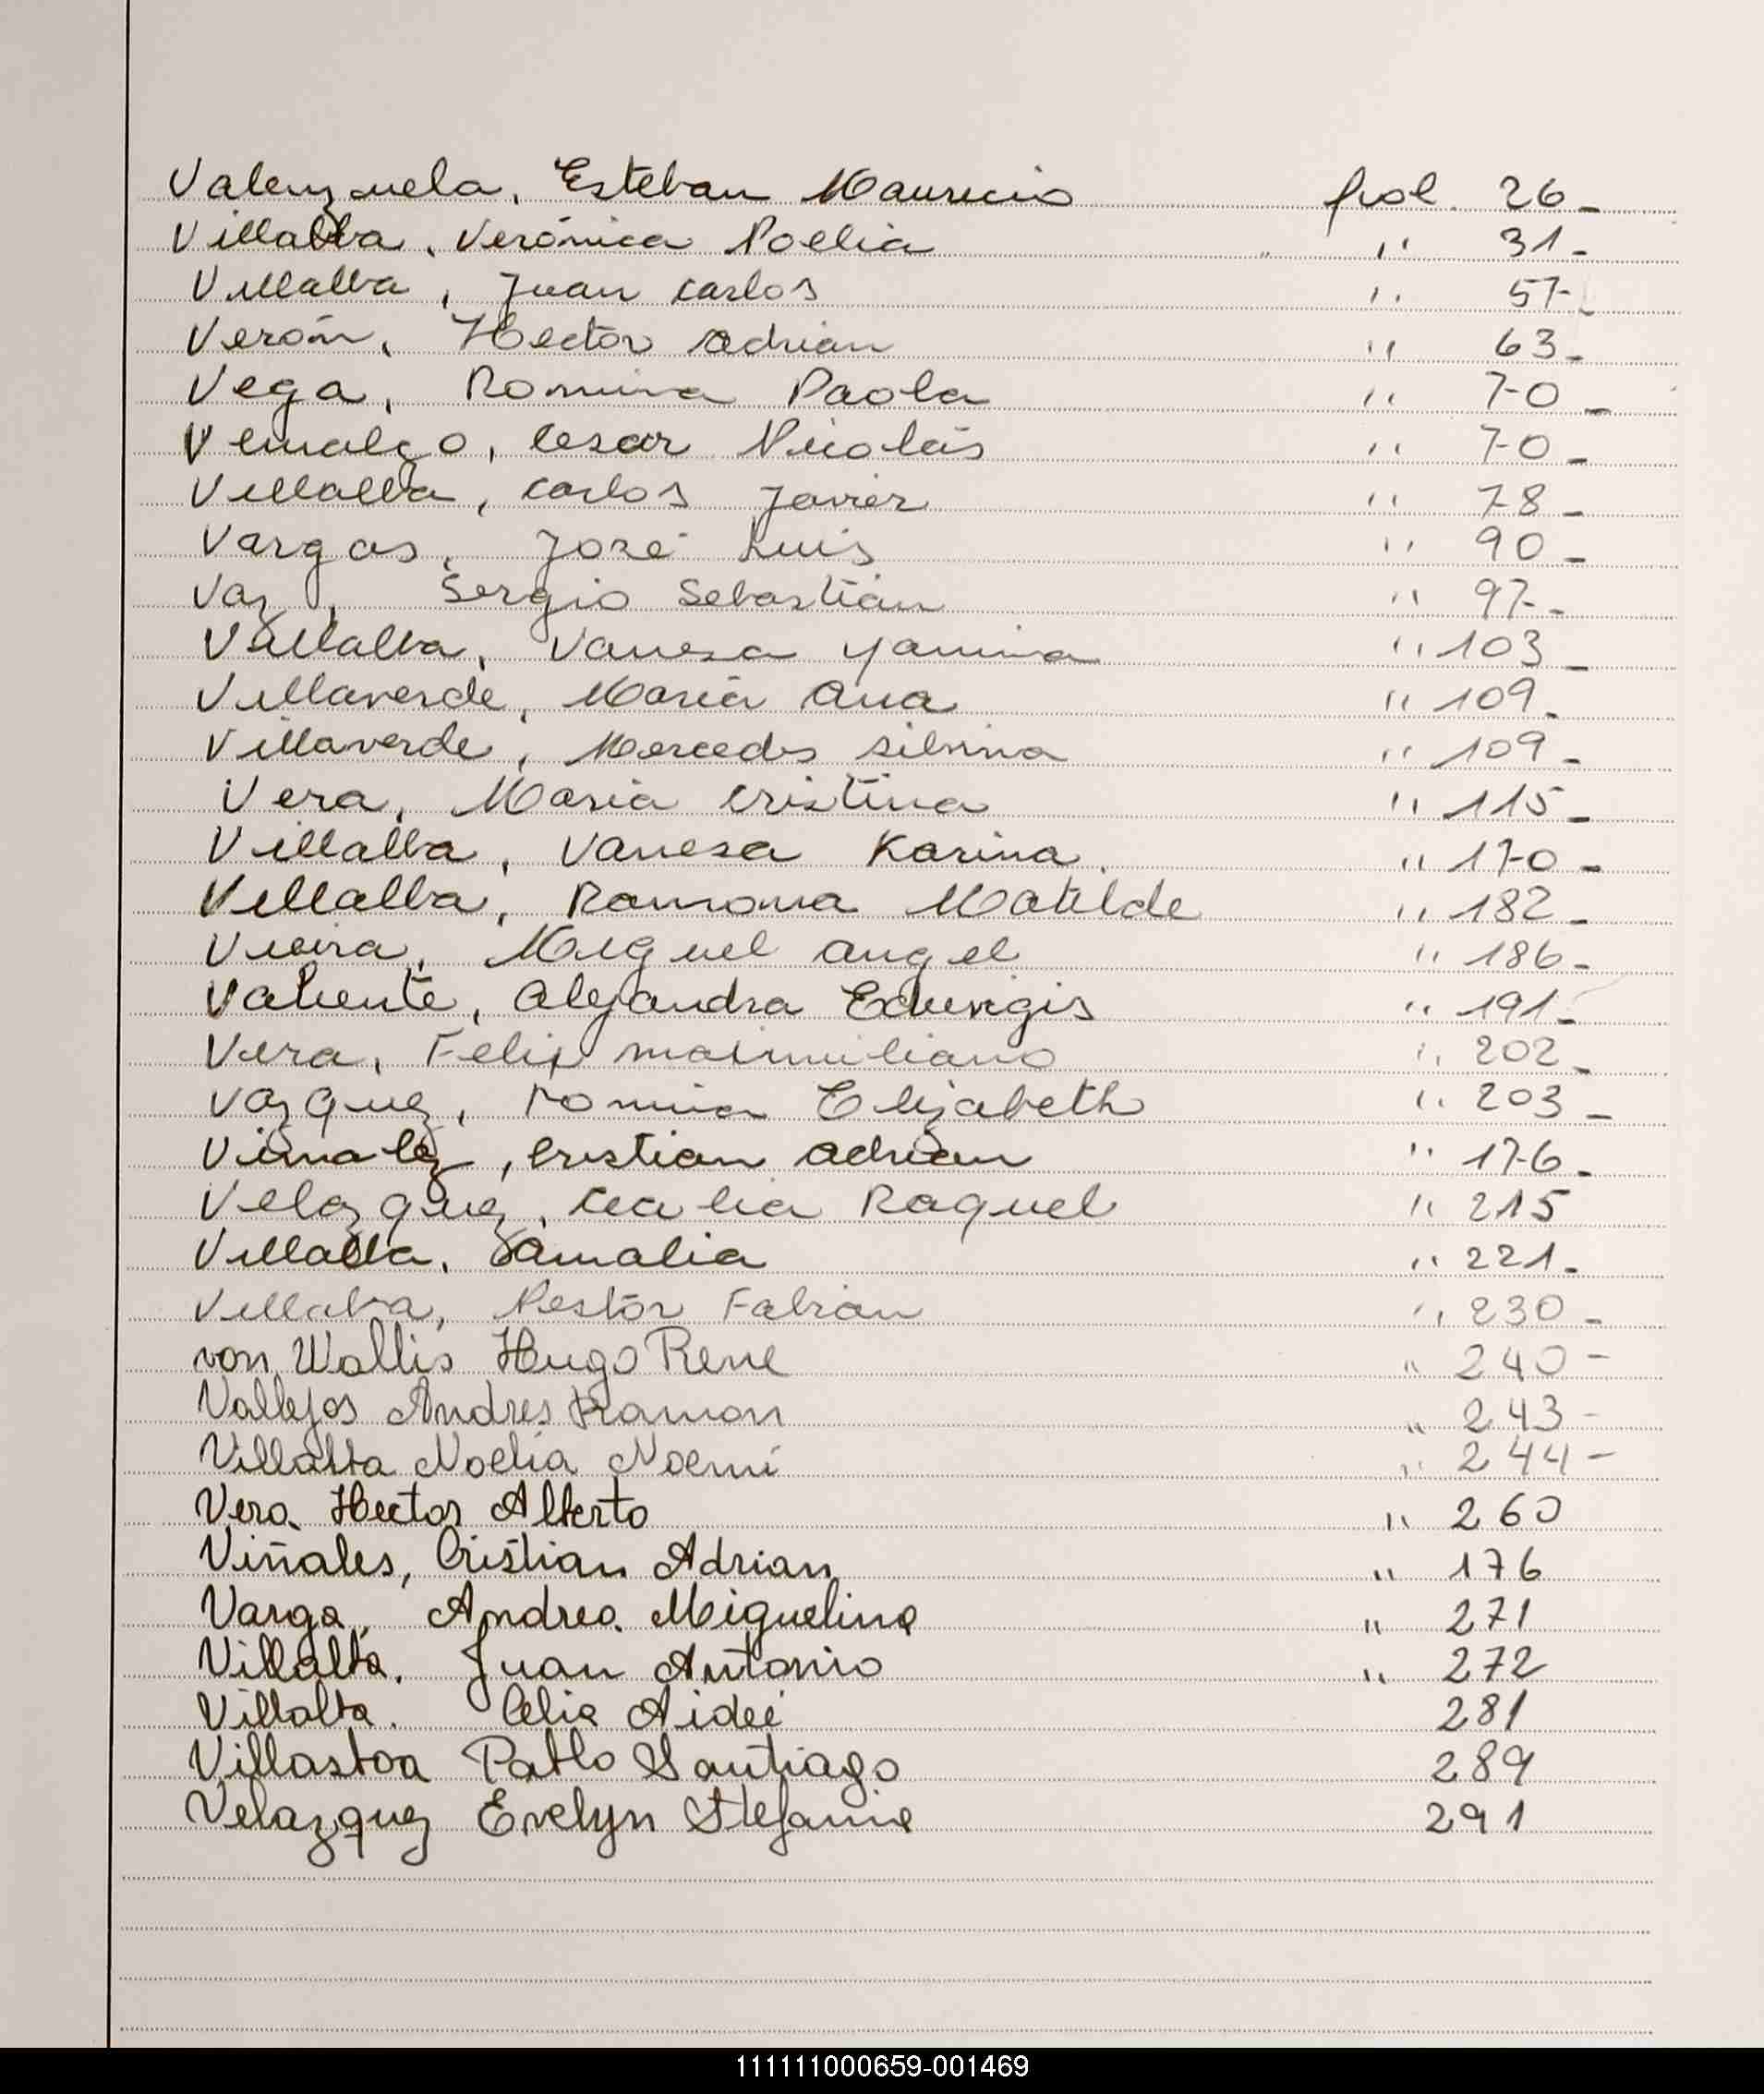 Valenzuela, Esteban Mauricio fol. 26-
Villalba, Verónica Noelia " 31-
Villalba, Juan Carlos " 57-
Verón, Hector Adrian " 63-
Vega, Romina Paola " 70-
Cesar Nicolás " 70-
Villalba, Carlos Javier " 78-
Vargas, José Luis " 90-
Vaz, Sergio Sebastián " 97-
Villalba, Vanesa Yamina " 103-
Villaverde, María Ana " 109-
Villaverde, Mercedes Silvina " 109-
Vera, María Cristina " 115-
Villalba, Vanesa Karina " 170-
Villalba, Ramona Matilde " 182-
Vieira, Miguel Angel " 186-
Valiente, Alejandra Eduvigis " 191-
Vera, Felix Maximiliano " 202-
Vazquez, Romina Elizabeth " 203-
Viñalez, Cristian Adrian " 176-
Velazquez, Cecilia Raquel " 215
Villalba, Amalia " 221-
Villalba, Nestor Fabian " 230-
von Wallis Hugo Rene " 240-
Vallejos Andres Ramon " 243-
Villalba Noelia Noemi " 244-
Vera Hector Alberto " 260
Viñales, Cristian Adrian " 176
Varga, Andrea Miguelina " 271
Villalba, Juan Antonio " 272
Villalba. Celia Aidee 281
Pablo Santiago 289
Velazquez Evelyn Stefanie 291
111111000659-001469